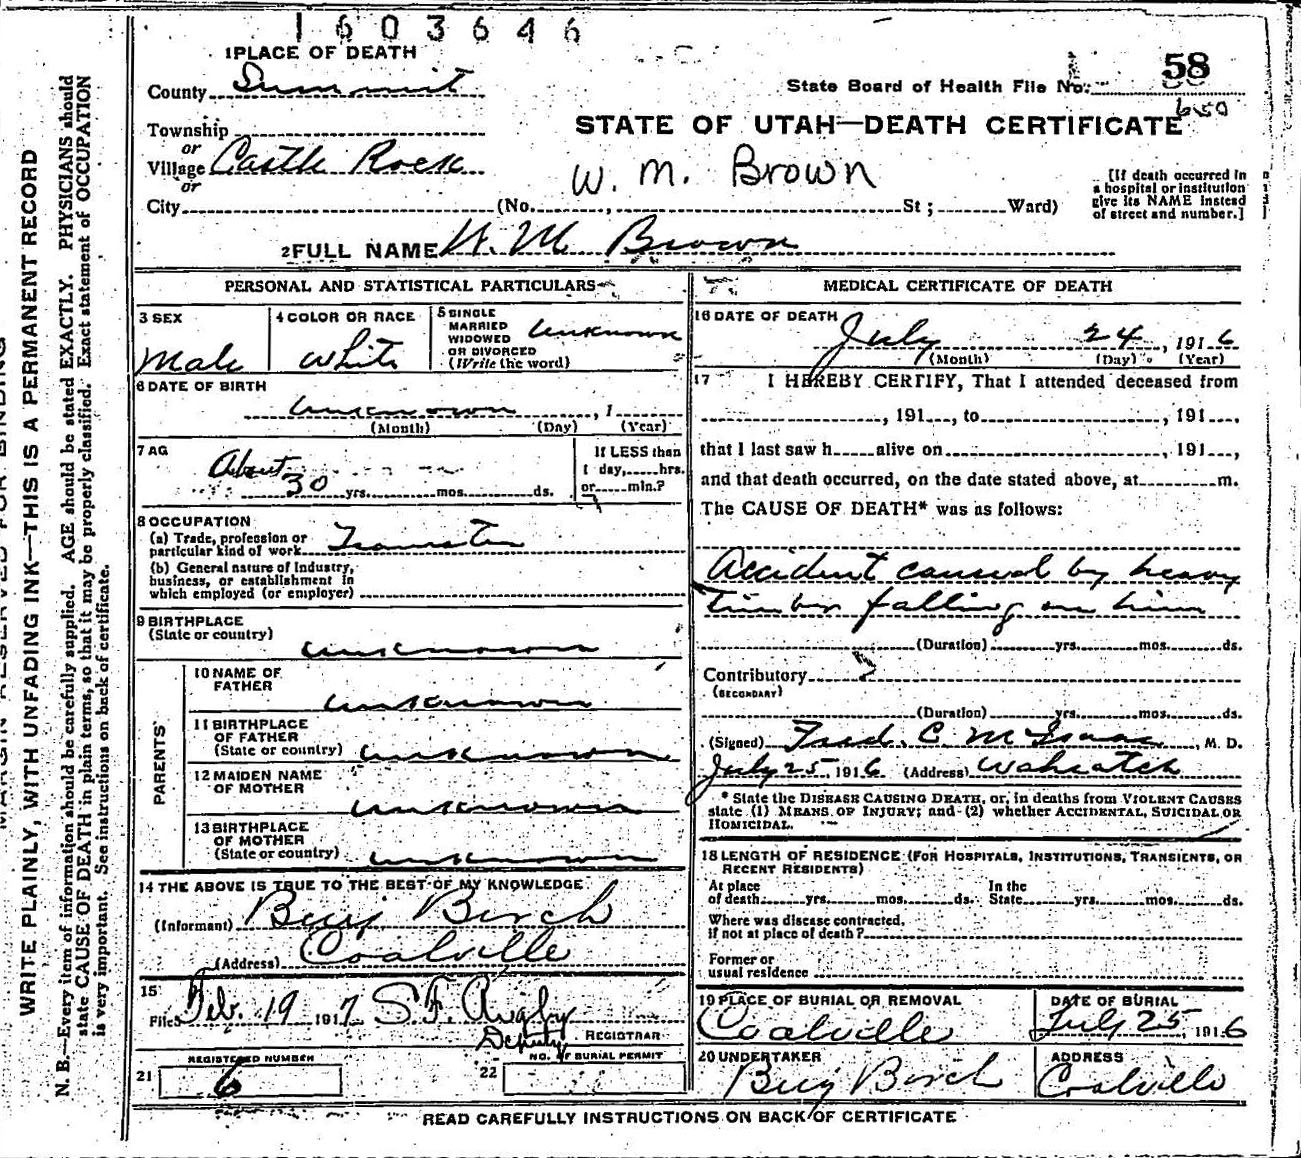 1603646
1 PLACE OF DEATH
County Summit
State Board of Health File No. 58
650
Township
or
Village Castle Rock
or
City (No. , St; Ward)
STATE OF UTAH—DEATH CERTIFICATE
W. M. Brown
[If death occurred in
a hospital or institution
give its NAME instead
of street and number.]
2 FULL NAME W. M. Brown
PERSONAL AND STATISTICAL PARTICULARS
3 SEX
Male
4 COLOR OR RACE
White
5 SINGLE
MARRIED
WIDOWED
OR DIVORCED
(Write the word)
Unknown
6 DATE OF BIRTH
unknown , 1
(Month) (Day) (Year)
7 AG
About
30 yrs. mos. ds.
If LESS than
1 day, hrs.
or min.?
8 OCCUPATION
(a) Trade, profession or
particular kind of work Teamster
(b) General nature of Industry,
business, or establishment in
which employed (or employer)
9 BIRTHPLACE
(State or country)
unknown
PARENTS'
10 NAME OF
FATHER
unknown
11 BIRTHPLACE
OF FATHER
(State or country) unknown
12 MAIDEN NAME
OF MOTHER
unknown
13 BIRTHPLACE
OF MOTHER
(State or country) unknown
14 THE ABOVE IS TRUE TO THE BEST OF MY KNOWLEDGE
(Informant) Birch
(Address) Coalville
15
Filed Feb. 19 1917 S.F. Rigby
Deputy REGISTRAR
REGISTERED NUMBER
21 6
NO. OF BURIAL PERMIT
22
MEDICAL CERTIFICATE OF DEATH
16 DATE OF DEATH
July 24, 1916
(Month) (Day) (Year)
17 I HEREBY CERTIFY, That I attended deceased from
, 191 , to , 191 ,
that I last saw h alive on , 191 ,
and that death occurred, on the date stated above, at m.
The CAUSE OF DEATH* was as follows:
Accident caused by heavy
timber falling on him
(Duration) yrs. mos. ds.
Contributory
(SECONDARY)
(Duration) yrs. mos. ds.
(Signed) Fred. C. McIsaac, M. D.
July 25, 1916 (Address) Wahsatch
* State the DISEASE CAUSING DEATH, or, in deaths from VIOLENT CAUSES
state (1) MEANS OF INJURY; and (2) whether ACCIDENTAL, SUICIDAL OR
HOMICIDAL.
18 LENGTH OF RESIDENCE (FOR HOSPITALS, INSTITUTIONS, TRANSIENTS, OR
RECENT RESIDENTS)
At place
of death yrs. mos. ds.
In the
State yrs. mos. ds.
Where was disease contracted,
if not at place of death?
Former or
usual residence
19 PLACE OF BURIAL OR REMOVAL
Coalville
DATE OF BURIAL
July 25 1916
20 UNDERTAKER
Birch
ADDRESS
Coalville
READ CAREFULLY INSTRUCTIONS ON BACK OF CERTIFICATE
MARGIN RESERVED FOR BINDING
WRITE PLAINLY, WITH UNFADING INK—THIS IS A PERMANENT RECORD
N. B.—Every item of information should be carefully supplied. AGE should be stated EXACTLY. PHYSICIANS should
state CAUSE OF DEATH in plain terms, so that it may be properly classified. Exact statement of OCCUPATION
is very important. See instructions on back of certificate.